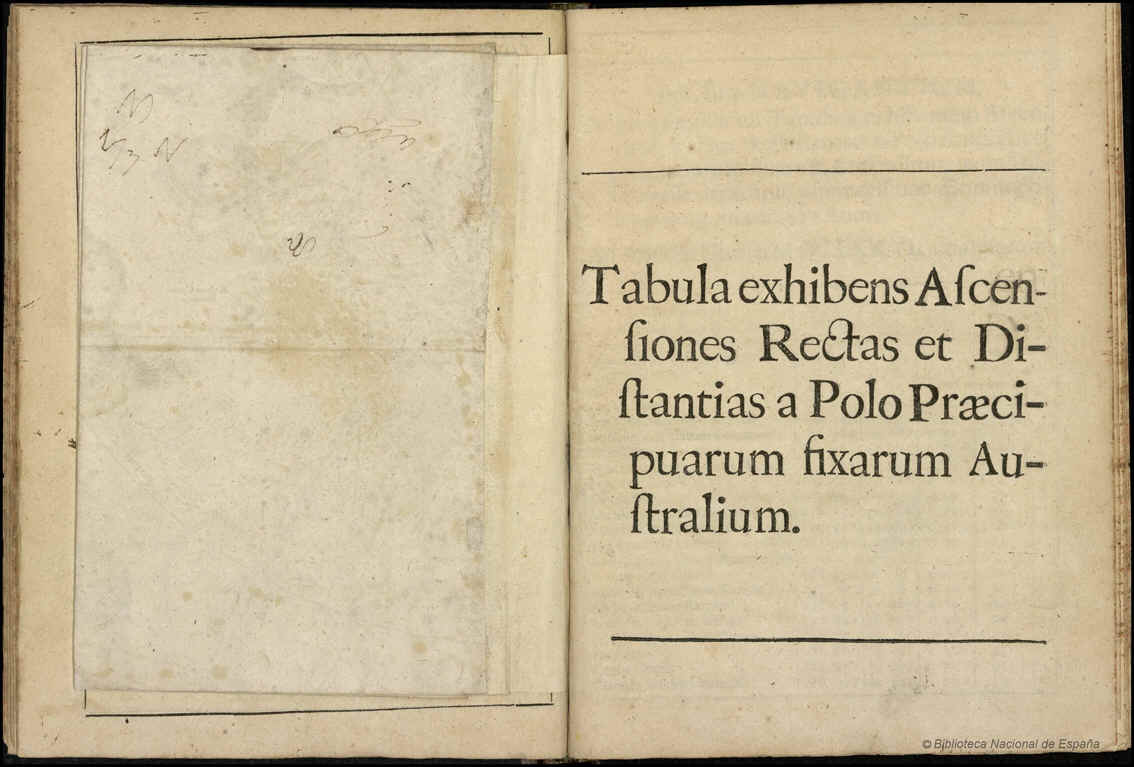 Tabula exhibens Aſcen-
ſiones Rectas et Di-
ſtantias a Polo Præci-
puarum fixarum Au-
ſtralium.
© Biblioteca Nacional de España